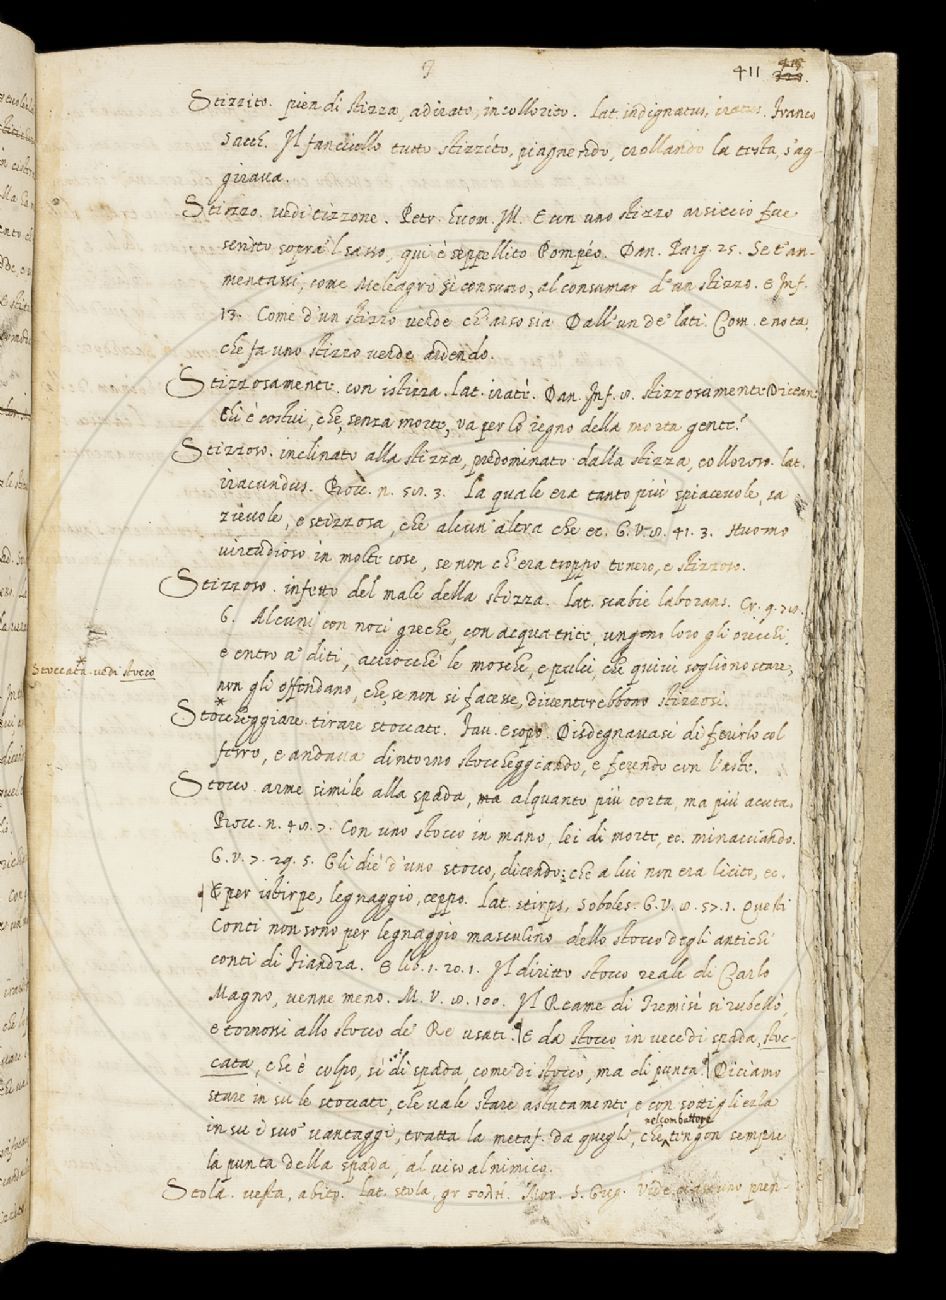 411 415
Stizzito. pien di stizza, adirato, incollorito. Lat. indignatus, iratus. Franco
Sacch. Il fanciullo tutto stizzito, piagnendo, crollando la testa, s'ag-
girava.
Stizzo. vedi tizzone. Petr. huom. Ill. E con uno stizzo arsiccio fue
scritto sopra 'l sasso, qui è seppellito Pompéo. Dan. Purg. 25. Se t'am-
mentassi, come Meleagro si consumò, al consumar d'un stizzo. E Inf.
13. Come d'un stizzo verde ch'arso sia Dall'un de' lati. Com. e nota,
che fa uno stizzo verde ardendo.
Stizzosamente. con istizza. Lat. iratè. Dan. Inf. 8. stizzosamente Dicean:
Chi è costui, che, senza morte, va per lo regno della morta gente?
Stizzoso. inclinato alla stizza, predominato dalla stizza, colloroso. lat.
iracundus. Bocc. n. 58. 3. La quale era tanto più spiacevole, sa
zievole, e stizzosa, che alcun'altra che ec. G. V. 8. 41. 3. Huomo
virtudioso in molte cose, se non ch'era troppo tenero, e stizzoso.
Stizzoso. infetto del male della stizza. Lat. scabie laborans. Cr. 9. 78.
6. Alcuni con noci greche, con acqua trite, ungono loro gli orecchi,
e entro a' diti, acciocchè le mosche, e pulci, che quivi sogliono stare,
Stoccata. vedi stocco
non gli offendano, che, se non si facesse, diventerebbono stizzosi.
Stoccheggiare. tirare stoccate. Fav. Esopo. Disdegnavasi di ferirlo col
ferro, e andava dintorno stoccheggiando, e ferendo con l'aste.
Stocco. arme simile alla spada, ma alquanto più corta, ma più acuta.
Bocc. n. 48. 7. Con uno stocco in mano, lei di morte, ec. minacciando.
G. V. 7. 29. 5. Gli diè d'uno stocco, dicendo: che a lui non era licito, ec.
E per istirpe, legnaggio, ceppo. Lat. stirps, soboles. G. V. 8. 57. 1. Questi
Conti non sono per legnaggio masculino dello stocco degli antichi
conti di Fiandra. E lib. 1. 20. 1. Il diritto stocco reale di Carlo
Magno, venne meno. M. V. 8. 100. Il Reame di Tremisi si rubellò,
e tornossi allo stocco de' Re usati. E da stocco in vece di spada, stoc-
cata, che è colpo, sì di spada, come di stocco, ma di punta. Diciamo
stare in su le stoccate, che vale stare astutamente, e con sottigliezza
in su i suo' vantaggi, tratta la metaf. da quegli, che nel combattere tengon sempre
la punta della spada, al viso al nimico.
Stola. vesta, abito. lat. stola, gr. στολή. Mor. S. Greg.